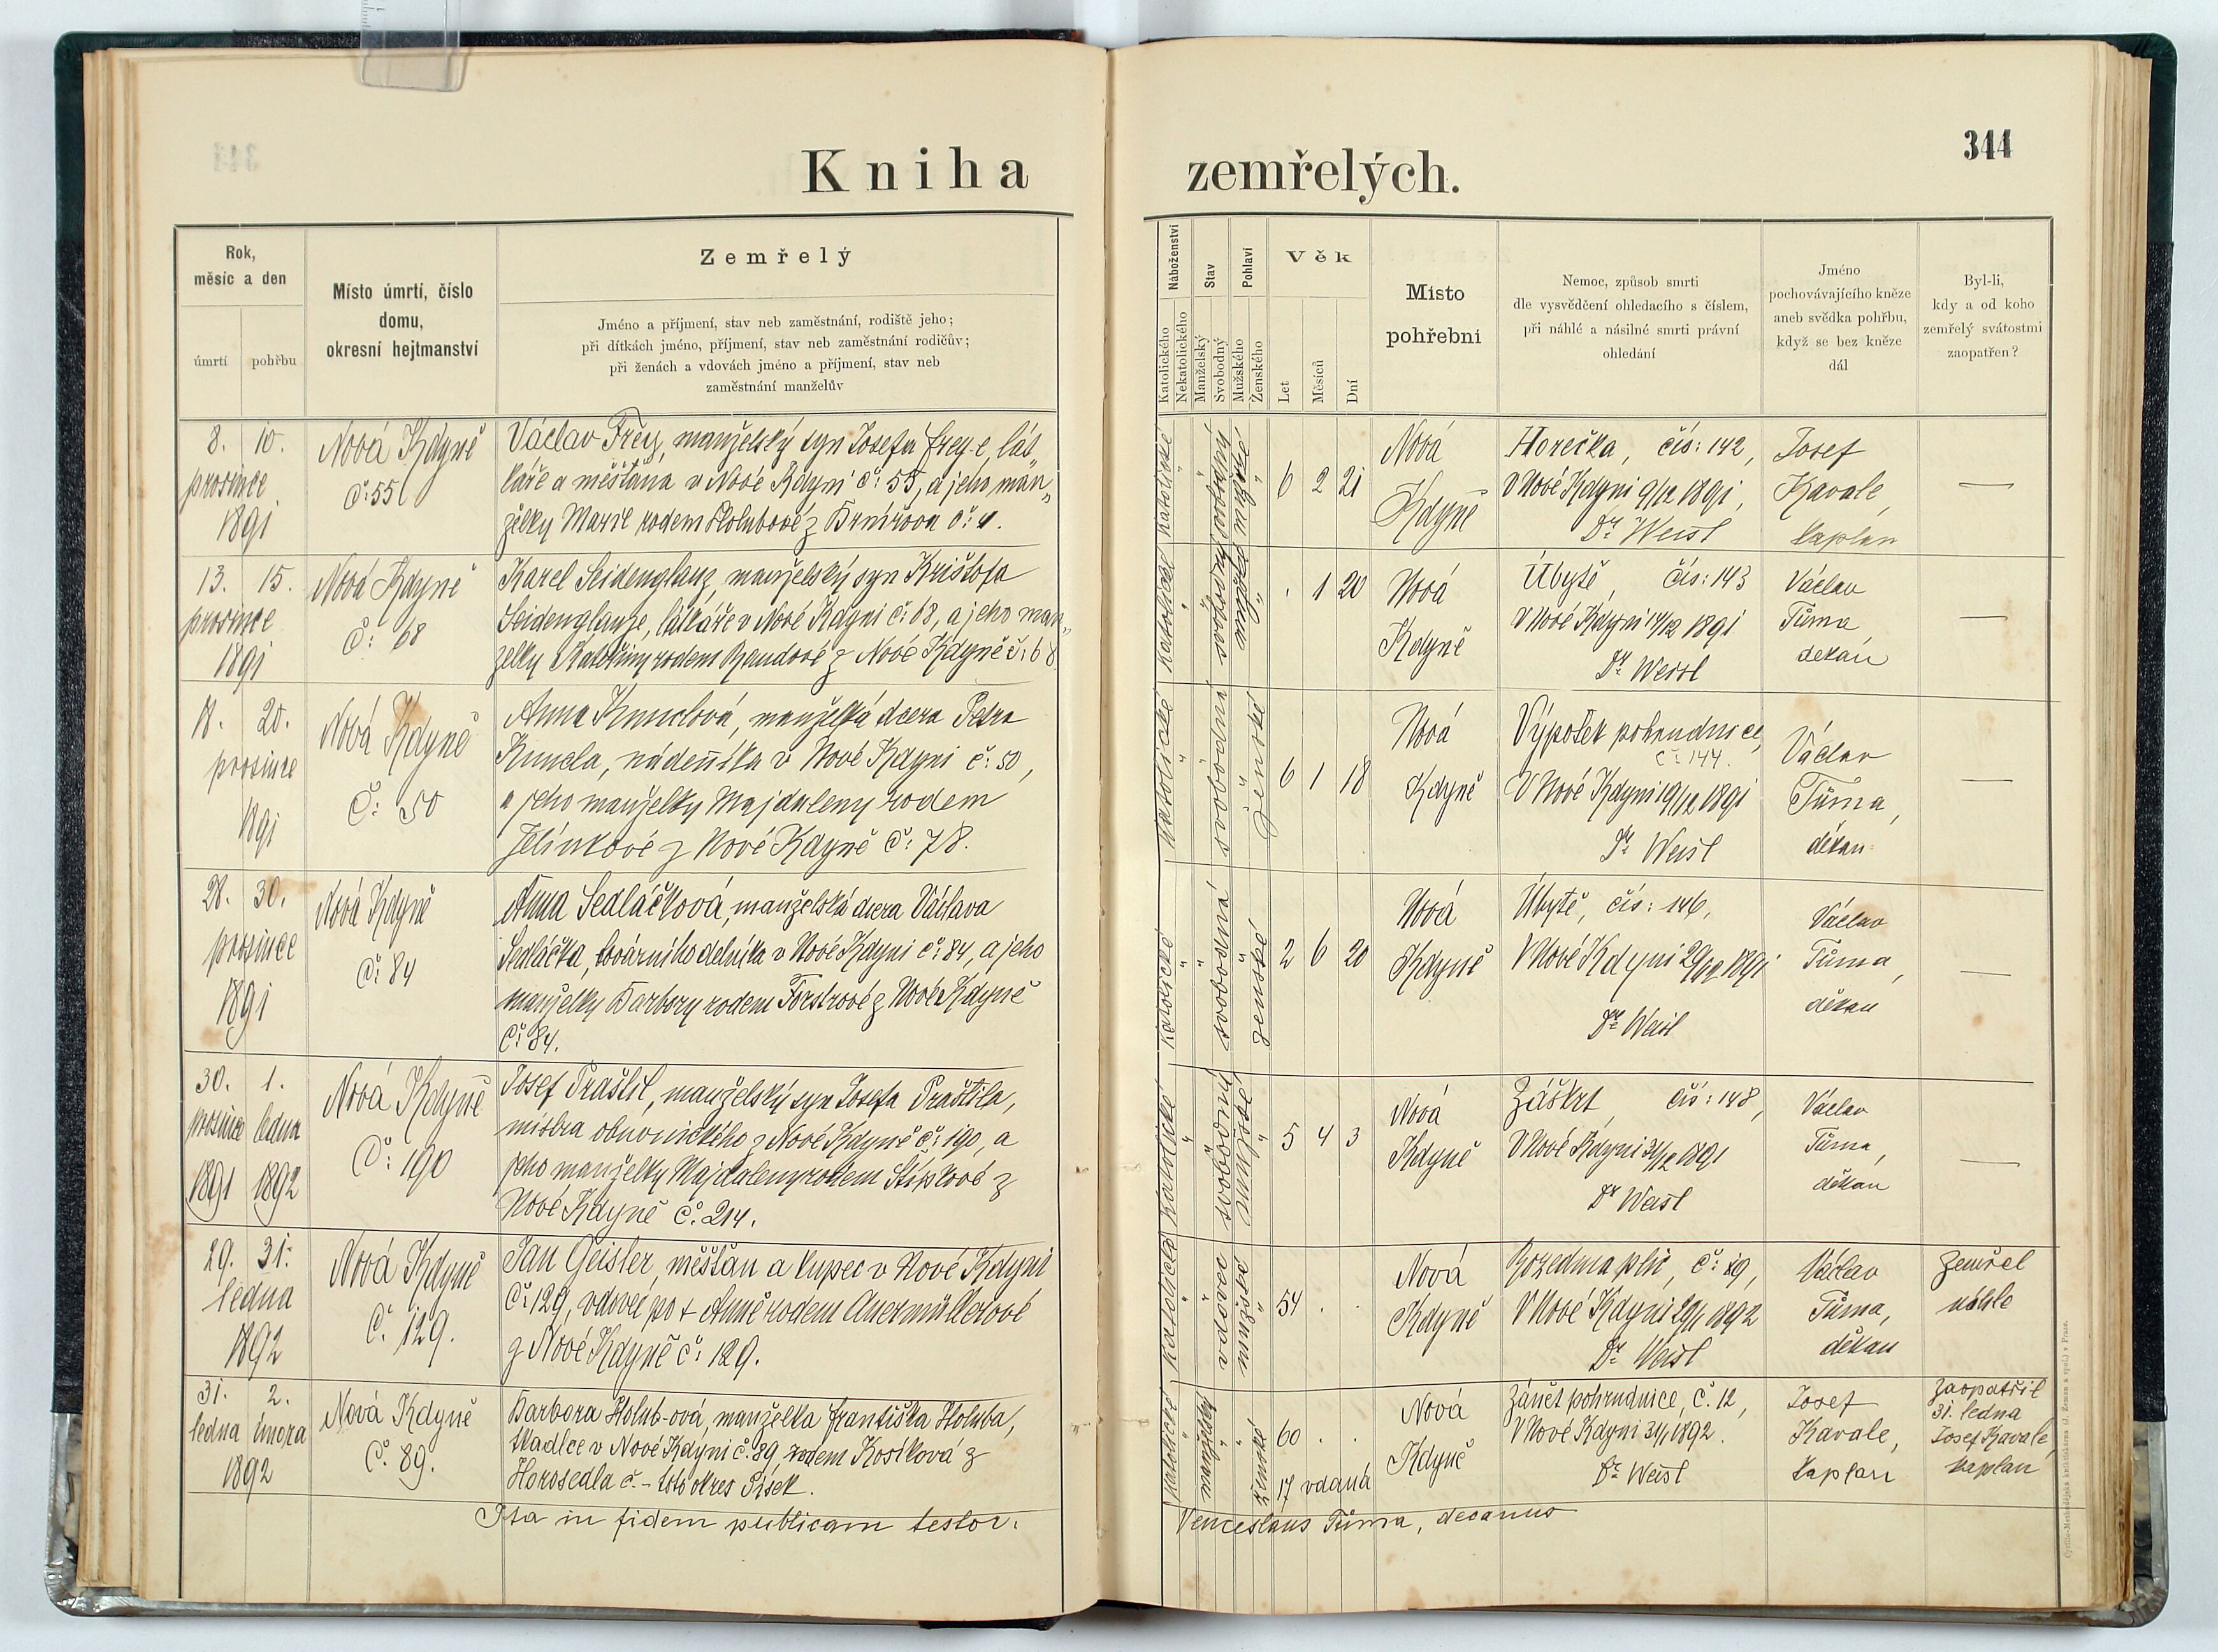 344
Kniha zemřelých.
Rok,
měsíc a den
úmrtí pohřbu
Místo úmrtí, číslo
domu,
okresní hejtmanství
Zemřelý
Jméno a příjmení, stav neb zaměstnání, rodiště jeho;
při dítkách jméno, příjmení, stav neb zaměstnání rodičův;
při ženách a vdovách jméno a příjmení, stav neb
zaměstnání manželův
Náboženství
Katolického
Nekatolického
Stav
Manželský
Svobodný
Pohlaví
Mužského
Ženského
Věk
Let
Měsíců
Dní
Místo
pohřební
Nemoc, způsob smrti
dle vysvědčení ohledacího s číslem,
při náhlé a násilné smrti právní
ohledání
Jméno
pochovávajícího kněze
aneb svědka pohřbu,
když se bez kněze
dál
Byl-li,
kdy a od koho
zemřelý svátostmi
zaopatřen?
8. 10.
prosince
1891
Nová Kdyně
č: 55
Václav Frey, manželský syn Josefa Frey-e, lát„
káře a měšťana v Nové Kdyni č: 55, a jeho man„
želky Marie rodem Holubové z
katolické
svobodný
mužské
6 2 21
Nová
Kdyně
Horečka, čís: 142,
V Nové Kdyni 9/12 1891,
Dr Weisl
Josef
Kavale,
kaplan
—
13. 15.
prosince
1891
Nová Kdyně
č: 68
Karel Seidenglanz, manželský syn Krištofa
Seidenglanze, látkáře v Nové Kdyni č: 68, a jeho man„
želky Kateřiny rodem z Nové Kdyně č: 68
katolické
svobodný
mužské
. 1 20
Nová
Kdyně
Úbytě, čís: 143
V Nové Kdyni 14/12 1891
Dr Weisl
Václav
Tůma,
dekan
—
18. 20.
prosince
1891
Nová Kdyně
Č: 50
Anna Kmuclová, manželská dcera Petra
nádenníka v Nové Kdyni č: 50,
a jeho manželky Majdaleny rodem
Jelínkové z Nové Kdyně č: 78.
katolické
svobodná
ženské
6 1 18
Nová
Kdyně
Výpotek pohrudnice,
č: 144.
V Nové Kdyni 19/12 1891
Dr Weisl
Václav
Tůma,
děkan
—
28. 30.
prosince
1891
Nová Kdyně
č: 84
Anna Sedláčková, manželská dcera Václava
Sedláčka, továrního dělníka v Nové Kdyni č: 84, a jeho
manželky Barbory rodem Forstrové z Nové Kdyně
č: 84.
katolické
svobodná
ženské
2 6 20
Nová
Kdyně
Úbytě, čís: 146,
V Nové Kdyni 29/12 1891
Dr Weisl
Václav
Tůma,
děkan
—
30. 1.
prosince ledna
1891 1892
Nová Kdyně
Č: 190
Josef Praštil, manželský syn Josefa Praštila,
mistra obuvnického z Nové Kdyně č: 190, a
jeho manželky Majdaleny rodem z
Nové Kdyně č. 214.
katolické
svobodný
mužské
5 4 3
Nová
Kdyně
Záškrt, čís: 148,
V Nové Kdyni 31/12 1891
Dr Weisl
Václav
Tůma,
děkan
—
29. 31.
ledna
1892
Nová Kdyně
Č. 129.
Jan Geisler, měšťan a kupec v Nové Kdyni
č: 129, vdovec po + Anně rodem Auermüllerové
z Nové Kdyně č: 129.
katolické
vdovec
mužské
54 . .
Nová
Kdyně
Rozedma plic, č: 19,
V Nové Kdyni 29/1 1892
Dr Weisl
Václav
Tůma,
děkan
Zemřel
náhle
31. 2.
ledna února
1892
Nová Kdyně
Č. 89.
Barbora Holub-ová, manželka Františka Holuba,
tkadlce v Nové Kdyni č. 89, rodem Kosíková z
Horosedla č. – okres Písek.
katolické
manželský
ženské
60 . .
17 vdaná
Nová
Kdyně
Zánět pohrudnice, č. 12,
V Nové Kdyni 31/1 1892.
Dr Weisl
Josef
Kavale,
kaplan
Zaopatřil
31. ledna
Josef Kavale,
kaplan
Ita in fidem publicam testor.
Venceslaus Tůma, decanus